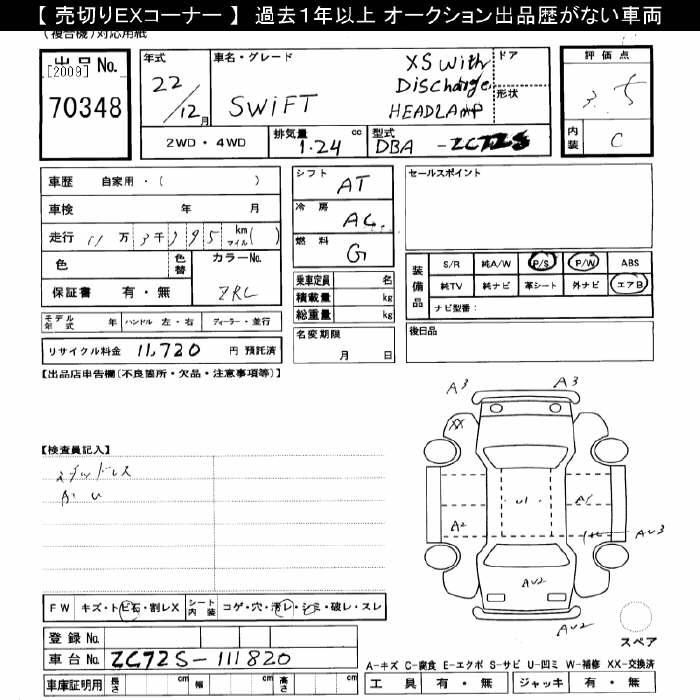 【 売切りEXコーナー 】 過去1年以上 オークション出品歴がない車両
(複合機)対応用紙
出品No.
[2009]
70348
年式
22/12月
車名・グレード
SWiFT
XS With
Discharge
HEADLAMP
ドア
形状
評価点
3.5
内装
C
2WD・4WD
排気量 1.24 cc
型式 DBA -ZC72S
車歴 自家用・( )
車検 年 月
走行 11万 3千 395 km マイル( )
色 色替 カラーNo.
保証書 有・無 ZRL
モデル年式 年 ハンドル 左・右 ディーラー・並行
リサイクル料金 11,720 円 預託済
シフト AT
冷房 AC
燃料 G
乗車定員 名
積載量 kg
総重量 kg
名変期限
月 日
セールスポイント
装備品
S/R 純A/W P/S P/W ABS
純TV 純ナビ 革シート 外ナビ エアB
ナビ型番:
後日品
【出品店申告欄(不良箇所・欠品・注意事項等)】
【検査員記入】
スタッドレス
A3 A3
XX
U1
A2 A1
AU2
AU3
AU2
スペア
FW キズ・トビ石・割レX シート内装 コゲ・穴・汚レ・シミ・破レ・スレ
登録No.
車台No. ZC72S-111820
車庫証明用 長さ cm 幅 cm 高さ cm
A-キズ C-腐食 E-エクボ S-サビ U-凹ミ W-補修 XX-交換済
工具 有・無 ジャッキ 有・無